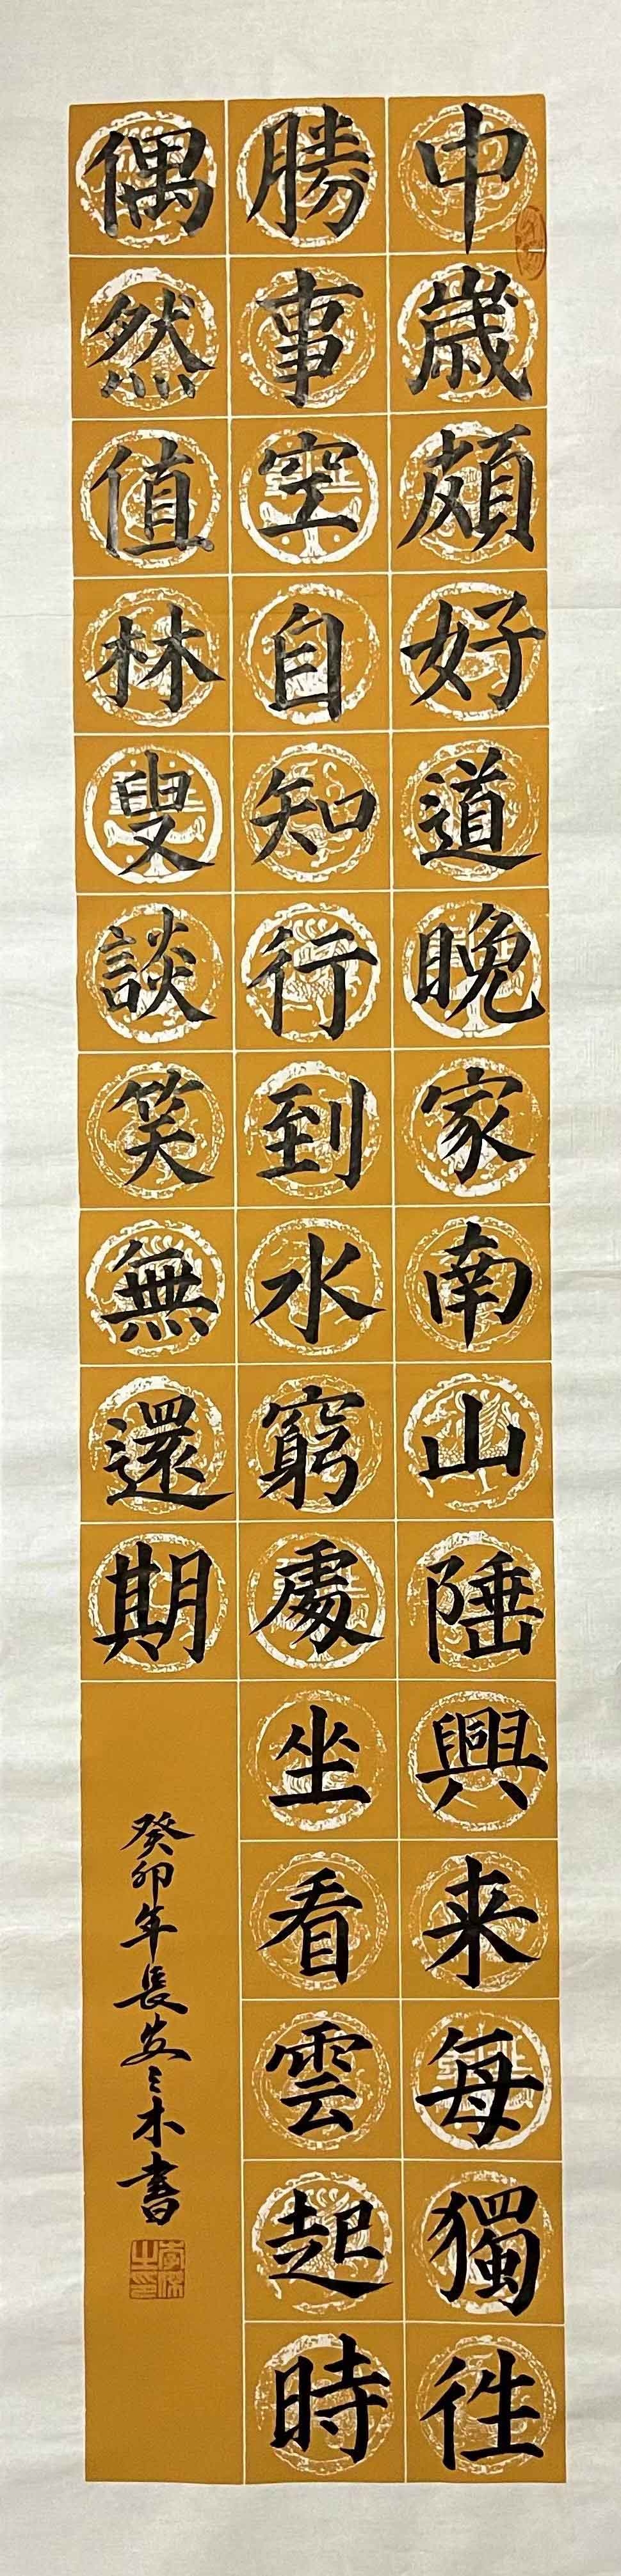 中歲頗好道晚家南山陲興来每獨往
勝事空自知行到水窮處坐看雲起時
偶然值林叟談笑無還期
癸卯年長安三木書